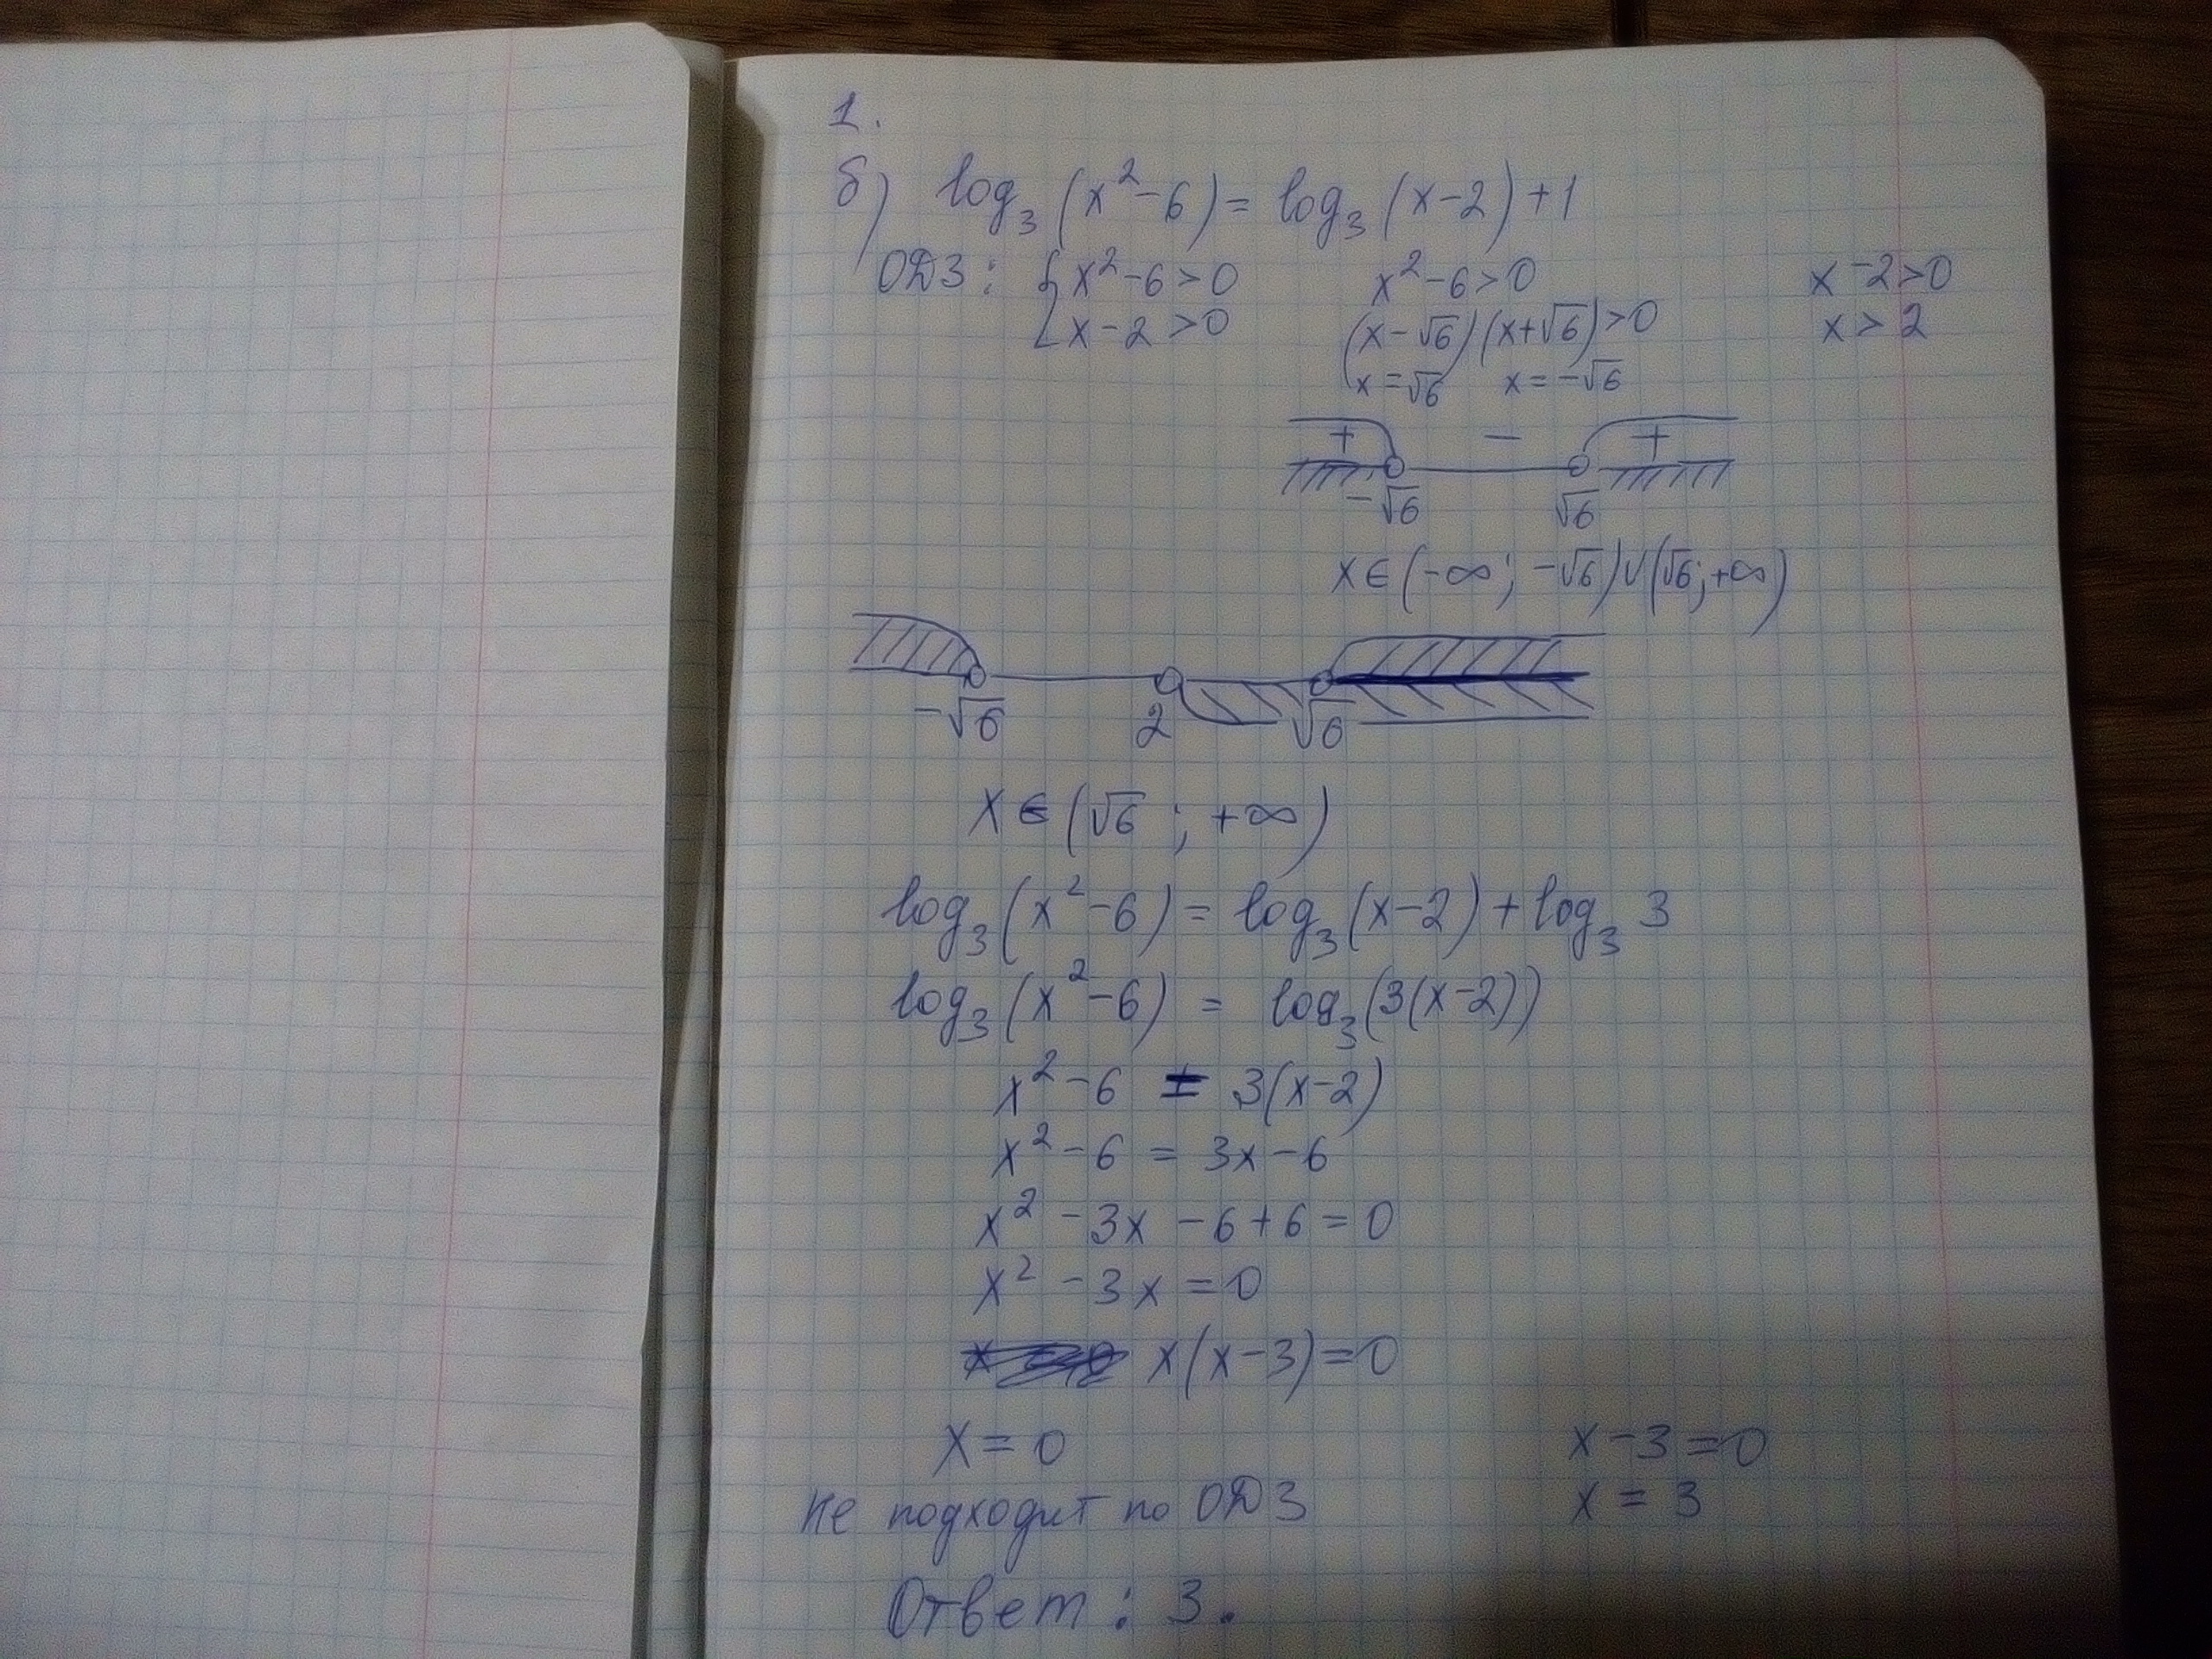 1.
б) log₃(x²-6) = log₃(x-2)+1
ОДЗ: { x²-6>0 x²-6>0 x-2>0
x-2>0 (x-√6)(x+√6)>0 x>2
x=√6 x=-√6
+ - +
-√6 √6
x∈(-∞; -√6)∪(√6; +∞)
-√6 2 √6
x∈(√6; +∞)
log₃(x²-6) = log₃(x-2) + log₃ 3
log₃(x²-6) = log₃(3(x-2))
x²-6 = 3(x-2)
x²-6 = 3x-6
x²-3x-6+6=0
x²-3x=0
x(x-3)=0
x=0 x-3=0
не подходит по ОДЗ x=3
Ответ: 3.